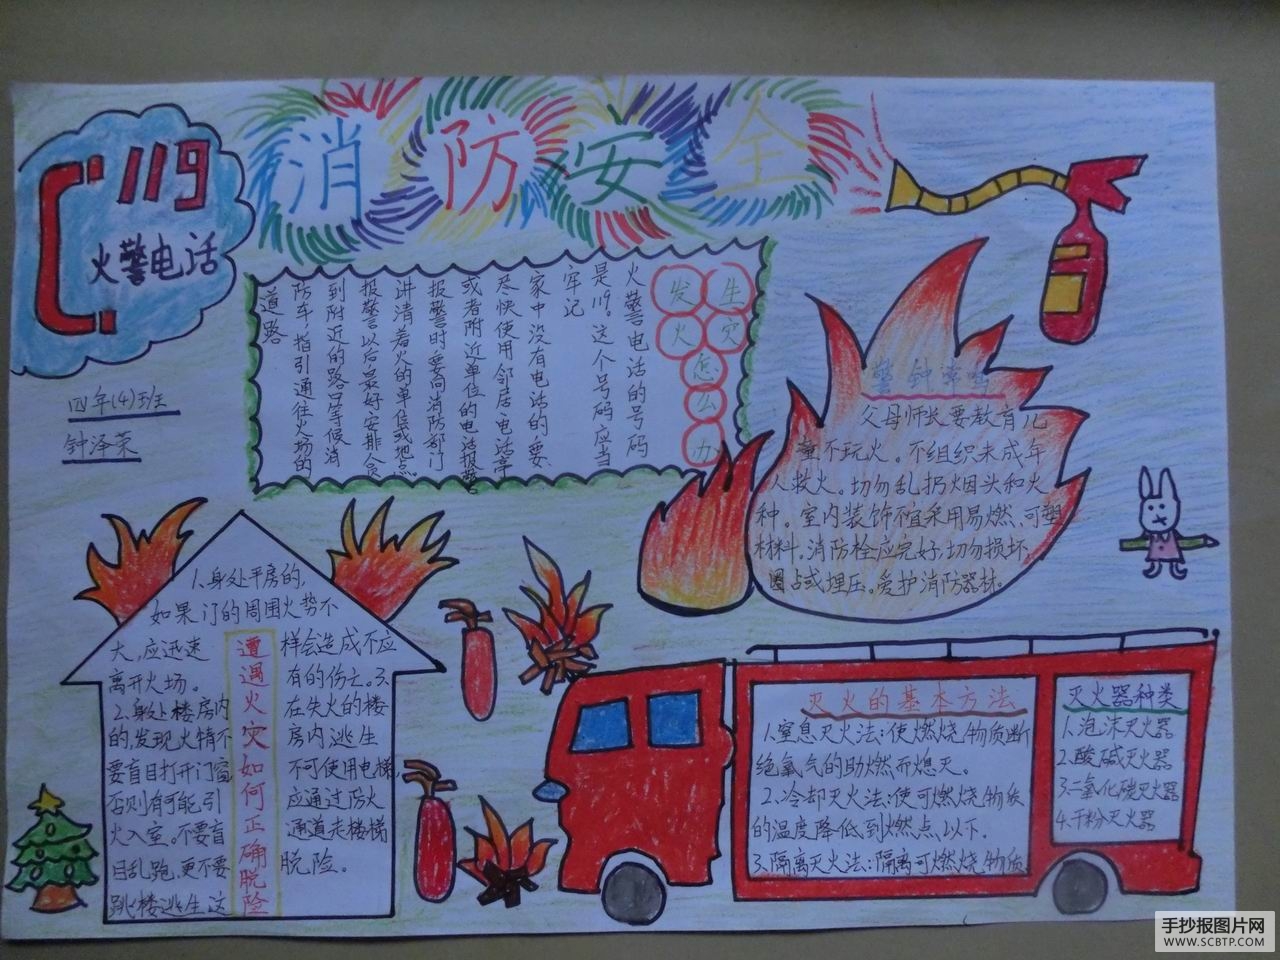 消防安全
119
火警电话
四年(4)班
钟泽荣
发生
火灾
怎
么
办
火警电话的号码
是119。这个号码应当
牢记
家中没有电话的要
尽快使用邻居电话亭
或者附近单位的电话报警
报警时要向消防部门
讲清着火的单位或地点。
报警以后最好安排人员
到附近的路口等候消
防车,指引通往火场的
道路
警钟常鸣
父母师长要教育儿
童不玩火。不组织未成年
人救火。切勿乱扔烟头和火
种。室内装饰不宜采用易燃、可塑
材料。消防栓应完好,切勿损坏、
圈占或埋压。爱护消防器材。
遭遇火灾如何正确脱险
1.身处平房的,
如果门的周围火势不
大,应迅速
离开火场。
2.身处楼房内
的,发现火情不
要盲目打开门窗
否则有可能引
火入室。不要盲
目乱跑,更不要
跳楼逃生这
样会造成不应
有的伤亡。3.
在失火的楼
房内逃生
不可使用电梯,
应通过防火
通道走楼梯
脱险。
灭火的基本方法
1.窒息灭火法:使燃烧物质断
绝氧气的助燃而熄灭。
2.冷却灭火法:使可燃烧物质
的温度降低到燃点以下。
3.隔离灭火法:隔离可燃烧物质
灭火器种类
1.泡沫灭火器
2.酸碱灭火器
3.二氧化碳灭火器
4.干粉灭火器
手抄报图片网
WWW.SCBTP.COM